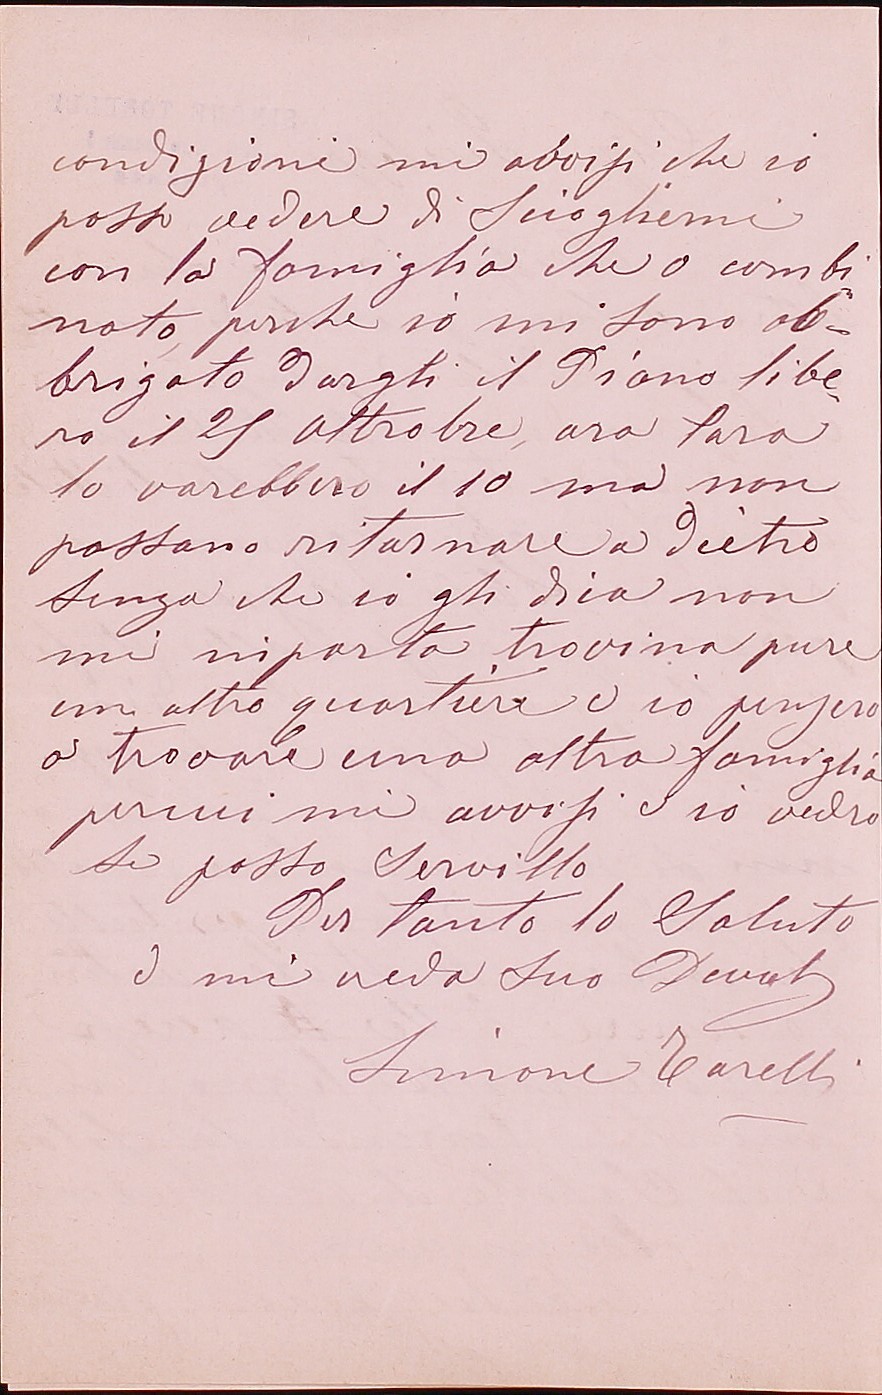 condizione mi abvisi che io
posso vedere di Sciogliermi
con la famiglia che o combi=
nato, perche io mi sono ob=
brigato dargli il Piano libe=
ro il 25 Ottrobre, ora lara
lo varebbero il 10 ma non
possano ritornare a dietro
senza che io gli dica non
mi niporta, trovina pure
un altro quartiere e io penzero
a trovare una altra famiglia
percui mi avvisi e io vedro
se posso servillo
Per tanto lo Saluto
e mi veda suo Devot
Simone Tarelli